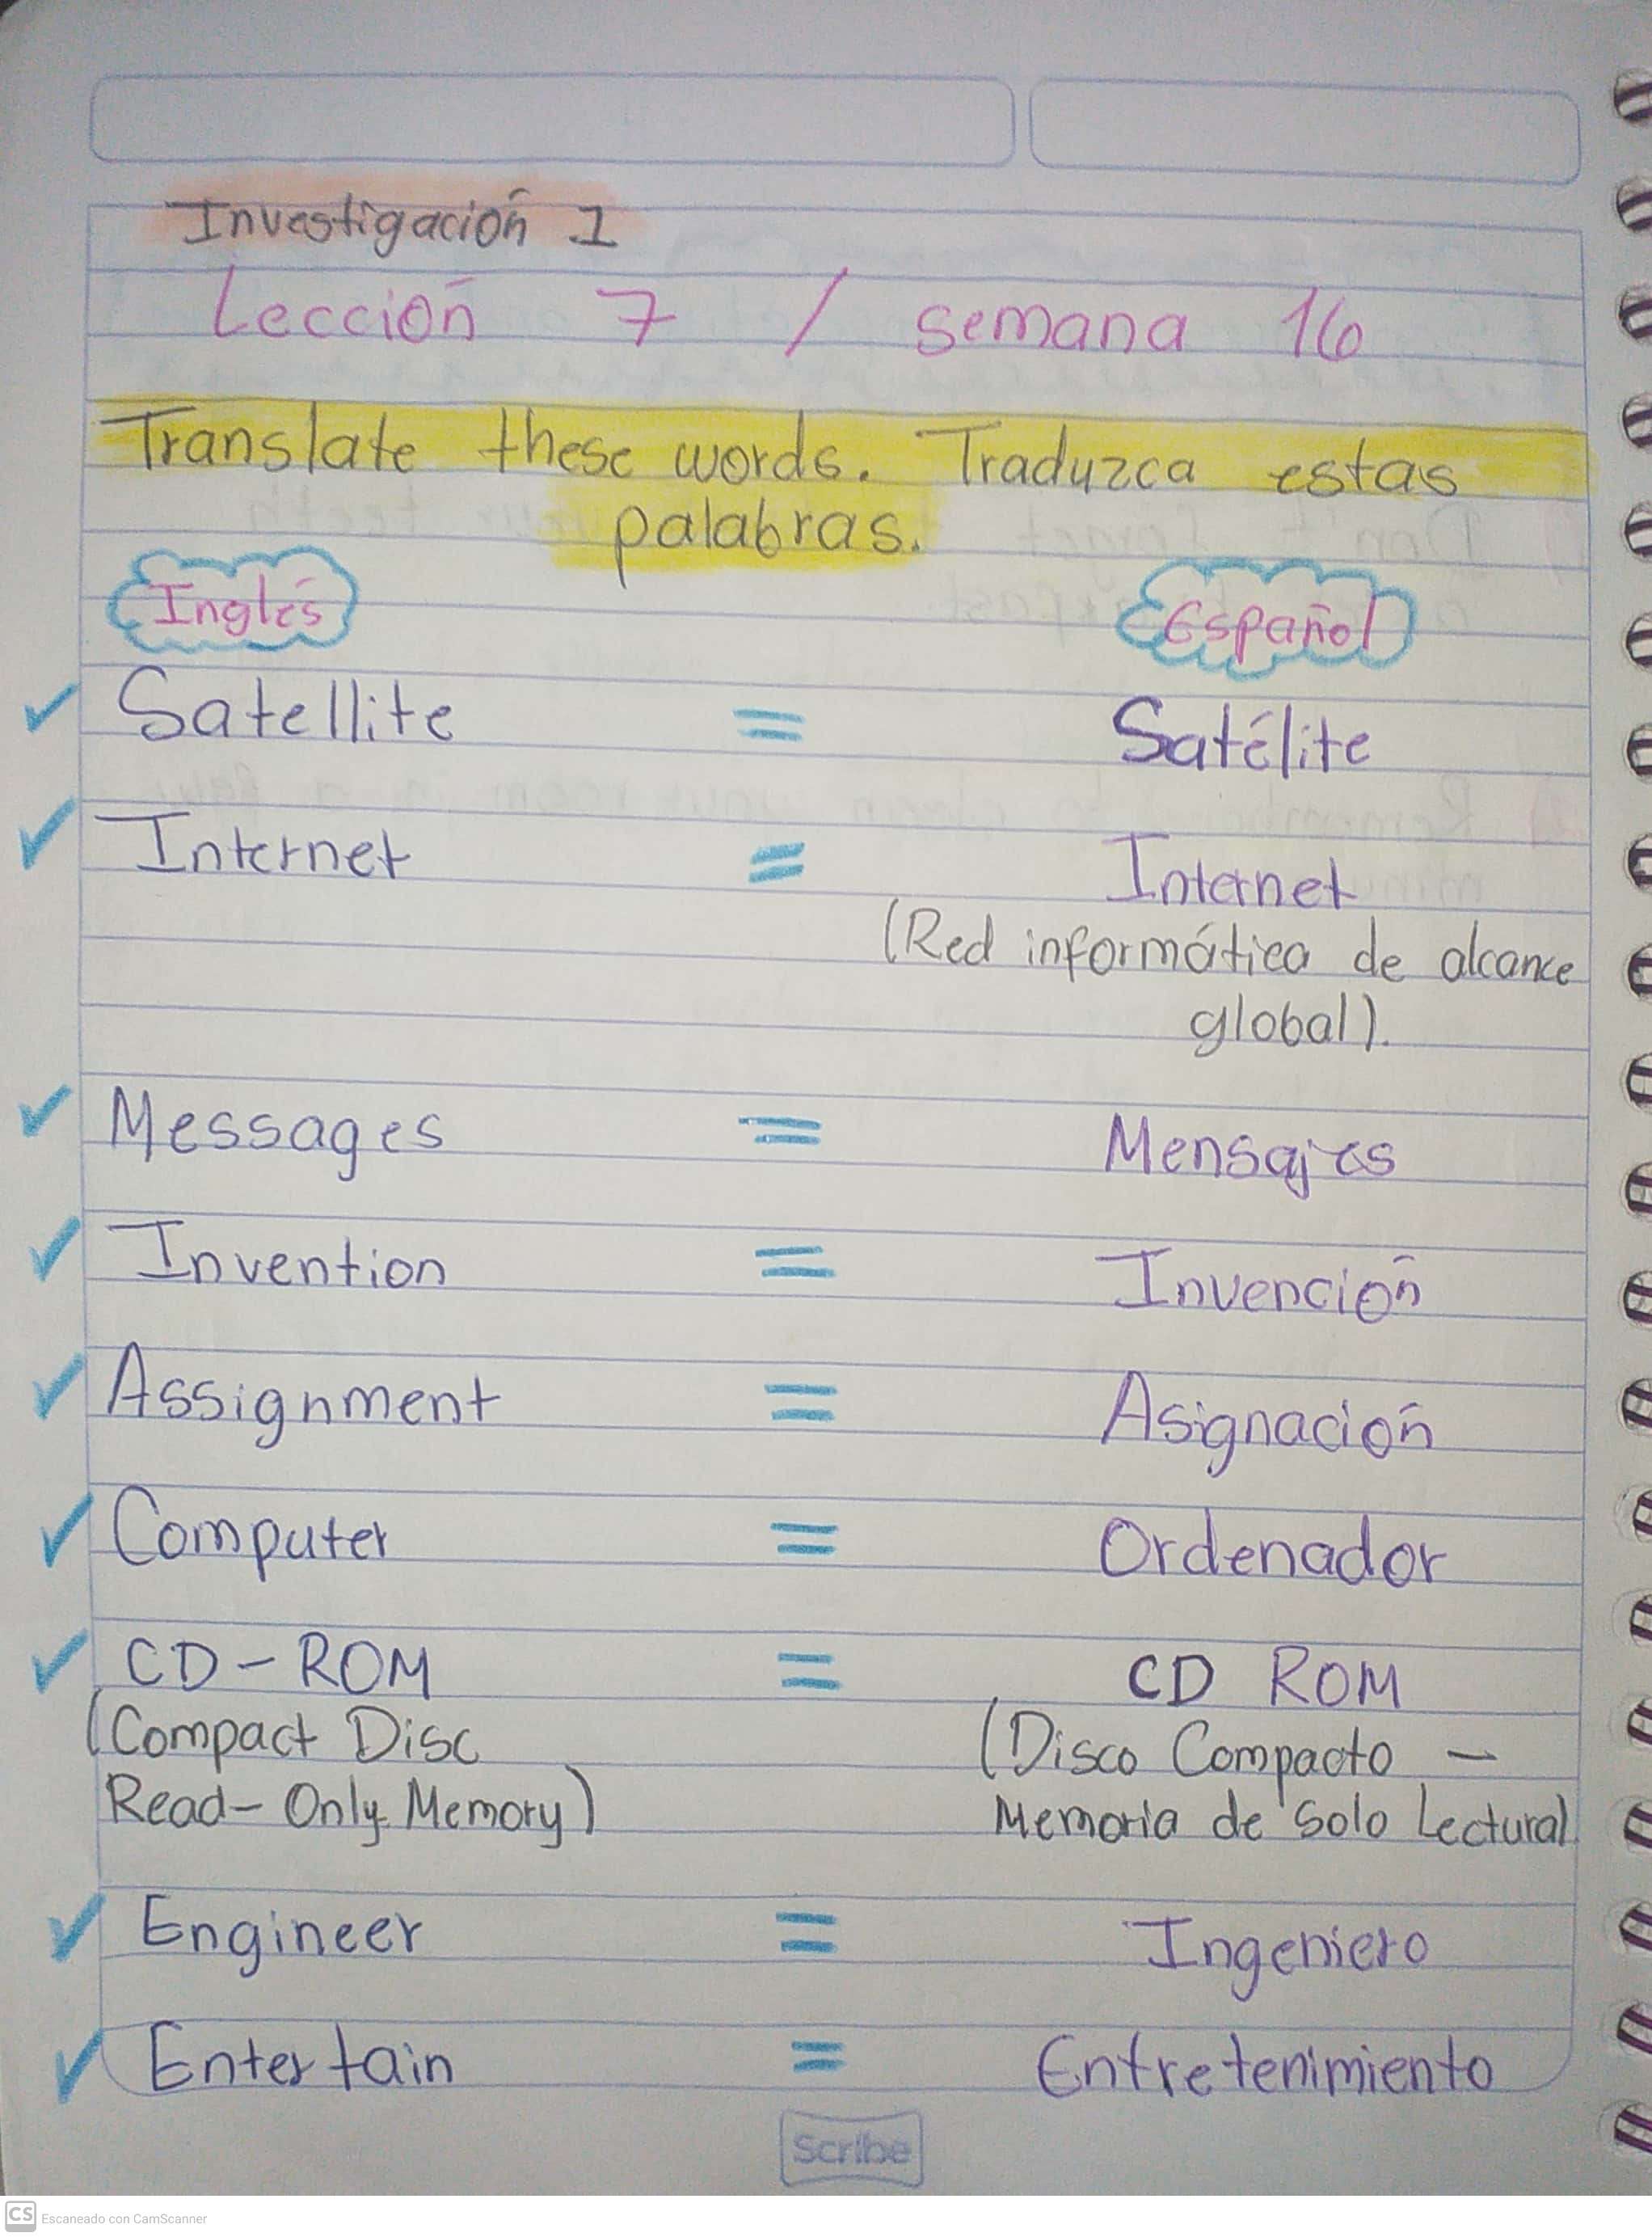 Investigación 1
Lección 7 / semana 16
Translate these words. Traduzca estas
palabras.
Inglés Español
Satellite = Satélite
Internet = Internet
(Red informática de alcance
global).
Messages = Mensajes
Invention = Invención
Assignment = Asignación
Computer = Ordenador
CD-ROM = CD ROM
(Compact Disc (Disco Compacto -
Read-Only Memory) Memoria de Solo Lectura)
Engineer = Ingeniero
Entertain = Entretenimiento
Scribe
CS Escaneado con CamScanner